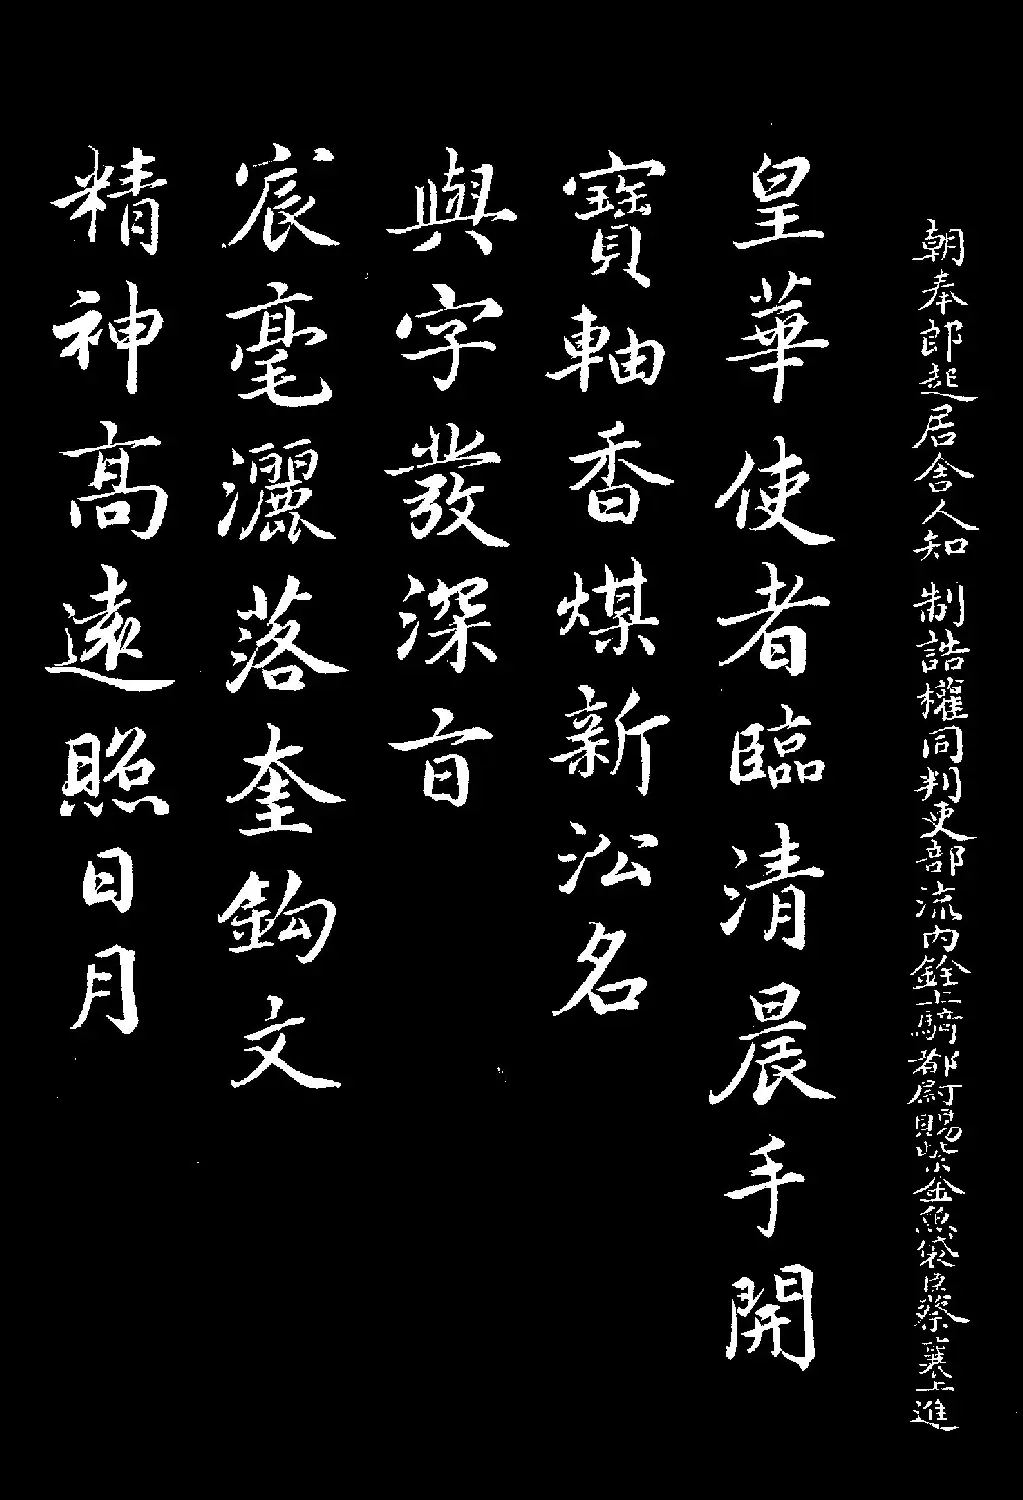 朝奉郎起居舍人知 制誥權同判吏部流內銓上騎都尉賜紫金魚袋臣蔡襄上進
皇華使者臨清晨手開
寶軸香煤新沄名
與字發深旨
宸毫灑落奎鈎文
精神高遠照日月